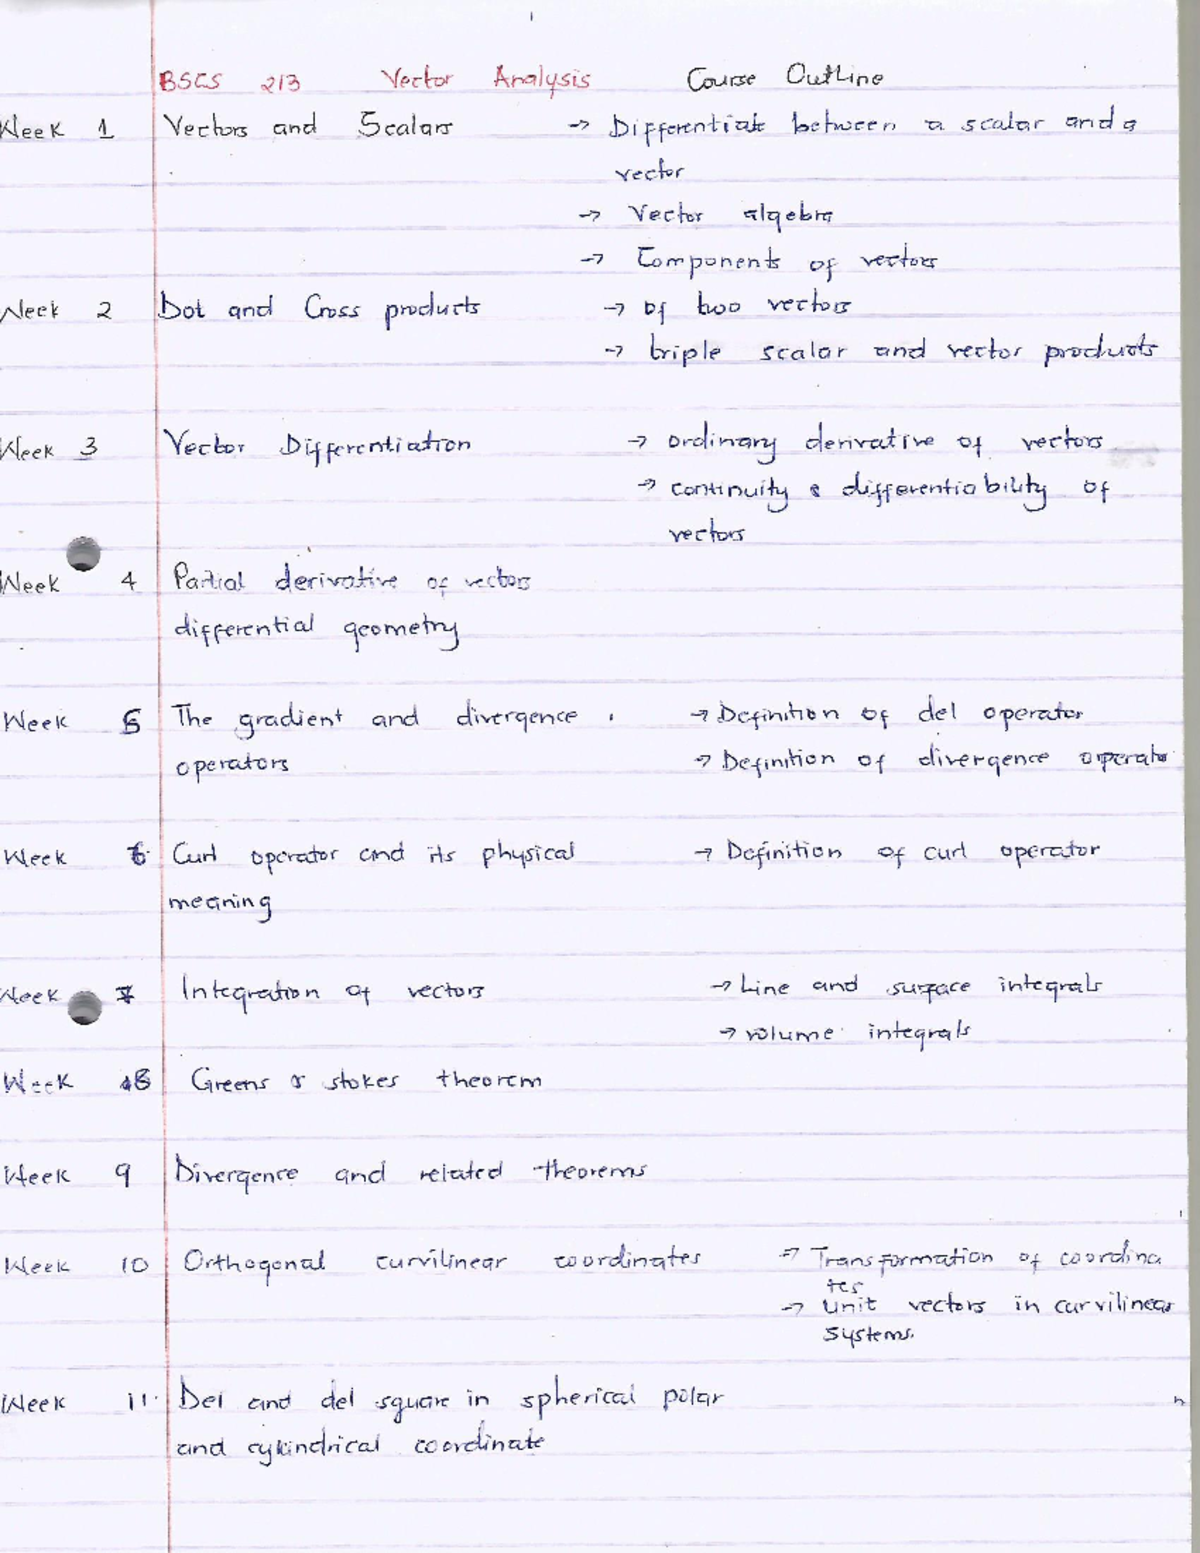 BSCS 213 Vector Analysis Course Outline
Week 1 Vectors and Scalars → Differentiate between a scalar and a
vector
→ Vector algebra
→ Components of vectors
Week 2 Dot and Cross products → of two vectors
→ triple scalar and vector products
Week 3 Vector Differentiation → ordinary derivative of vectors
→ continuity & differentiability of
vectors
Week 4 Partial derivative of vectors
differential geometry
Week 5 The gradient and divergence → Definition of del operator
operators → Definition of divergence operator
Week 6 Curl operator and its physical → Definition of curl operator
meaning
Week 7 Integration of vectors → Line and surface integrals
→ volume integrals
Week 8 Greens & stokes theorem
Week 9 Divergence and related theorems
Week 10 Orthogonal curvilinear coordinates → Transformation of coordina
tes
→ unit vectors in curvilinear
systems.
Week 11 Del and del square in spherical polar
and cylindrical coordinate